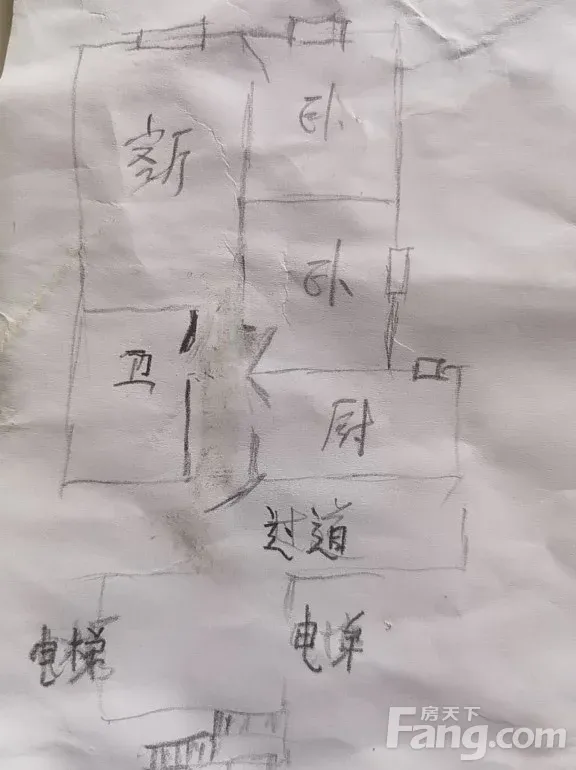 客厅
卧
卧
卫
厨
过道
电梯
电
房天下
Fang.com